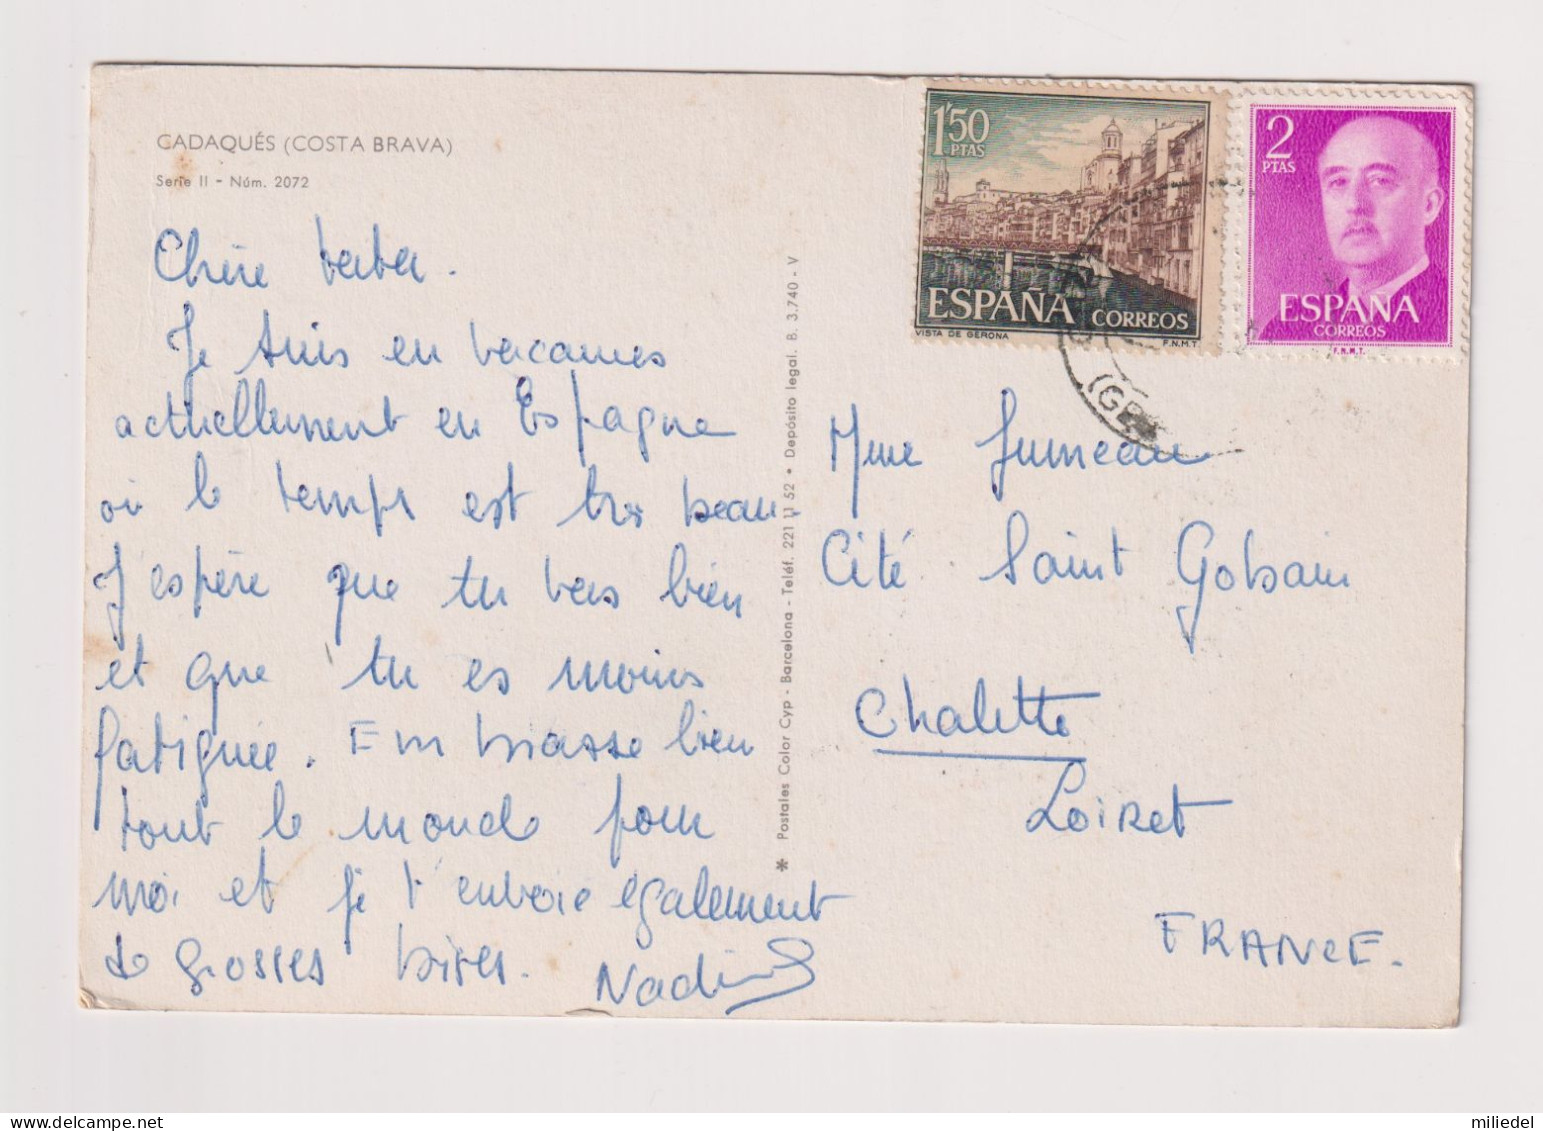 CADAQUÉS (COSTA BRAVA)
Serie II - Núm. 2072
Chère tata.
Je suis en vacances
actuellement en Espagne
où le temps est très beau.
J'espère que tu vas bien
et que tu es moins
fatiguée. Embrasse bien
tout le monde pour
moi et je t'envoie également
de grosses bises. Nadine
* Postales Color Cyp - Barcelona - Teléf. 221 11 52 • Depósito legal. B. 3.740 - V
1'50
PTAS
ESPAÑA CORREOS
VISTA DE GERONA F.N.M.T
2
PTAS
ESPAÑA
CORREOS
F.N.M.T.
(GE
Mme Jumeau
Cité Saint Gobain
Chalette
Loiret
FRANCE.
delcampe.net
miliedel